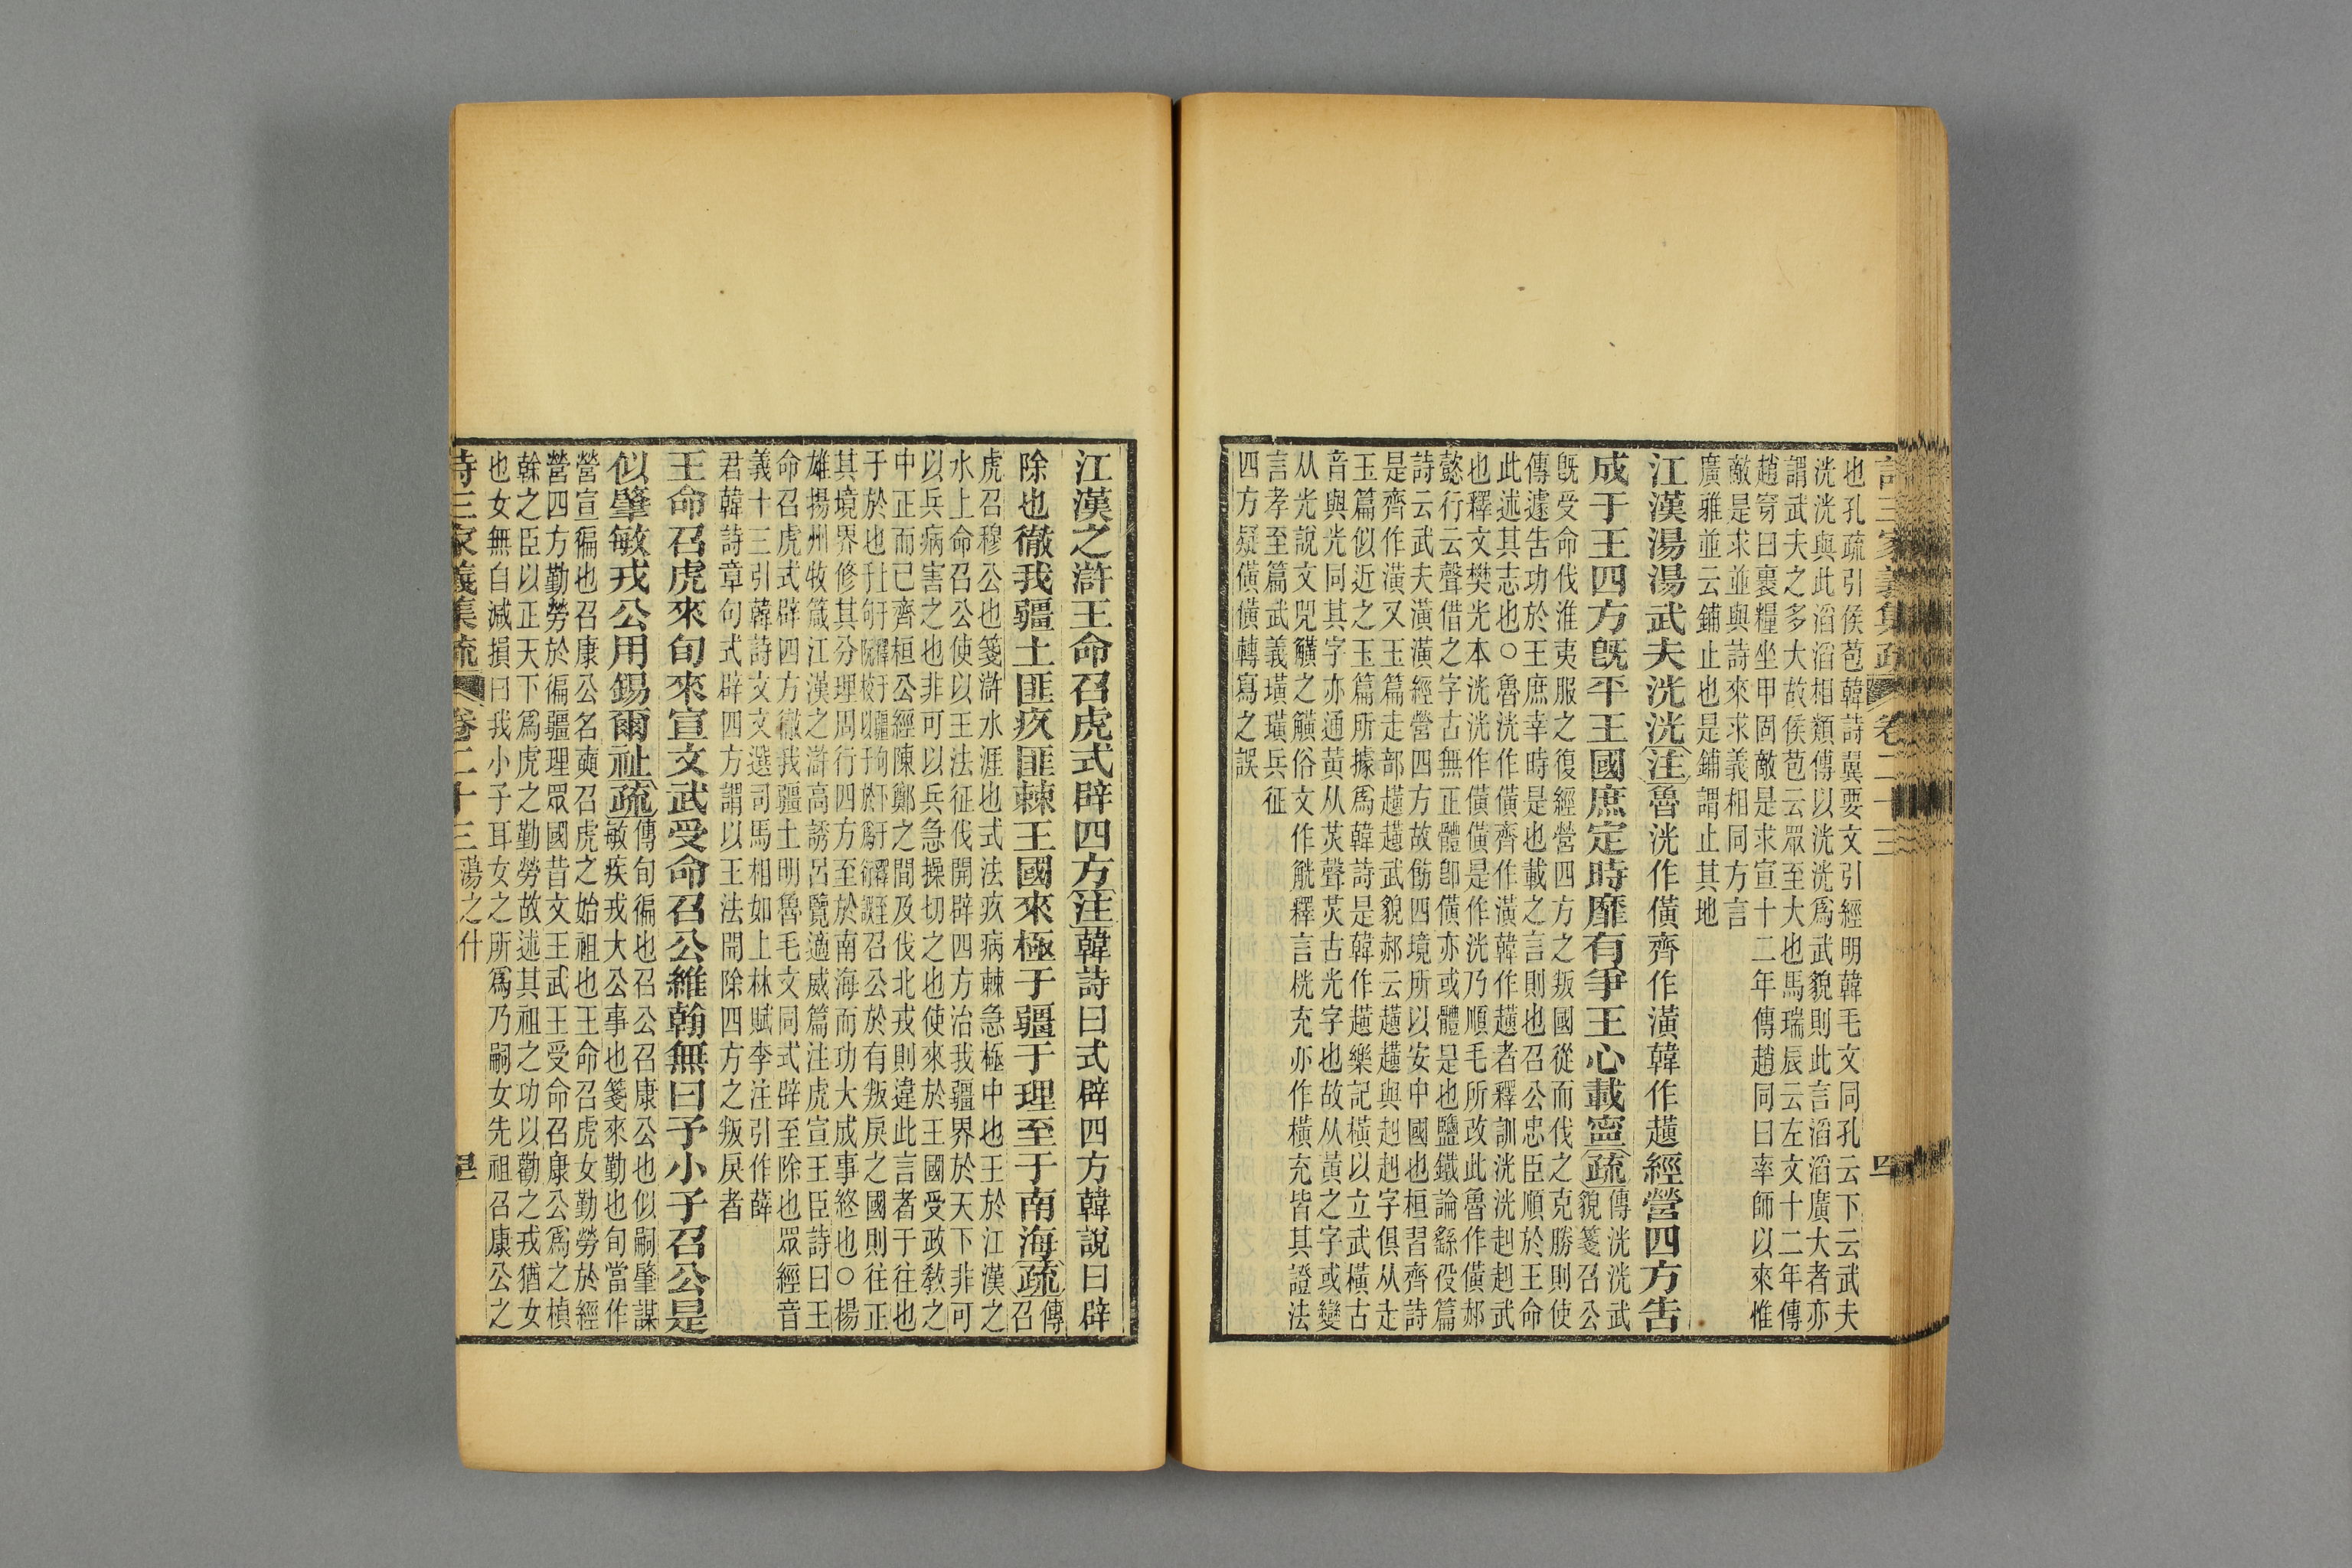 詩三家義集疏 卷二十三
也孔疏引侯苞韓詩翼要文引經明韓毛文同孔云下云武夫
洸洸與此滔滔相類傳以洸洸爲武貌則此言滔滔廣大者亦
謂武夫之多大故侯苞云眾至大也馬瑞辰云左文十二年傳
趙穿曰裹糧坐甲固敵是求宣十二年傳趙同曰率師以來惟
敵是求並與詩來求義相同方言
廣雅並云鋪止也是鋪謂止其地
江漢湯湯武夫洸洸注魯洸作僙齊作潢韓作趪經營四方告
成于王四方旣平王國庶定時靡有爭王心載寧疏傳洸洸武
貌箋召公
旣受命伐淮夷服之復經營四方之叛國從而伐之克勝則使
傳遽告功於王庶幸時是也載之言則也召公忠臣順於王命
此述其志也○魯洸作僙齊作潢韓作趪者釋訓洸洸赳赳武
也釋文樊光本洸洸作僙僙是作洸乃順毛所改此魯作僙郝
懿行云聲借之字古無正體卽僙亦或體是也鹽鐵論繇役篇
詩云武夫潢潢經營四方故飭四境所以安中國也桓習齊詩
是齊作潢又玉篇走部趪趪武貌郝云趪趪與赳赳字俱从走
玉篇似近之玉篇所據爲韓詩是韓作趪樂記橫以立武橫古
音與光同其字亦通黃从炗聲炗古光字也故从黃之字或變
从光說文兕觵之觵俗文作觥釋言桄充亦作橫充皆其證法
言孝至篇武義璜璜兵征
四方疑僙僙轉寫之誤
江漢之滸王命召虎式辟四方注韓詩曰式辟四方韓說曰辟
除也徹我疆土匪疚匪棘王國來極于疆于理至于南海疏傳
召
虎召穆公也箋滸水涯也式法疚病棘急極中也王於江漢之
水上命召公使以王法征伐開辟四方治我疆界於天下非可
以兵病害之也非可以兵急操切之也使來於王國受政教之
中正而已齊桓公經陳鄭之間及伐北戎則違此言者于往也
于於也召公於有叛戾之國則往正
其境界修其分理周行四方至於南海而功大成事終也○楊
雄揚州牧箴江漢之滸高誘呂覽適威篇注虎宣王臣詩曰王
命召虎式辟四方徹我疆土明魯毛文同式辟至除也眾經音
義十三引韓詩文文選司馬相如上林賦李注引作薛
君韓詩章句式辟四方謂以王法開除四方之叛戾者
王命召虎來旬來宣文武受命召公維翰無曰予小子召公是
似肇敏戎公用錫爾祉疏傳旬徧也召公召康公也似嗣肇謀
敏疾戎大公事也箋來勤也旬當作
營宣徧也召康公名奭召虎之始祖也王命召虎女勤勞於經
營四方勤勞於徧疆理眾國昔文王武王受命召康公爲之楨
榦之臣以正天下爲虎之勤勞故述其祖之功以勸之戎猶女
也女無自減損曰我小子耳女之所爲乃嗣女先祖召康公之
詩三家義集疏 卷二十三 蕩之什